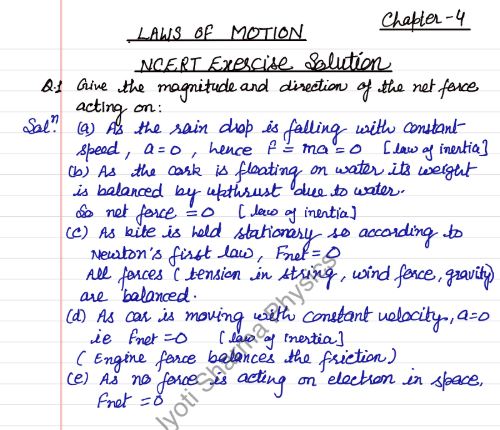 Chapter-4
LAWS OF MOTION
NCERT Exercise Solution
Q.1 Give the magnitude and direction of the net force
acting on:
Solⁿ. (a) As the rain drop is falling with constant
speed, a=0, hence f = ma = 0 [law of inertia]
(b) As the cork is floating on water its weight
is balanced by upthrust due to water.
So net force = 0 [law of inertia]
(c) As kite is held stationary so according to
Newton's first law, Fnet = 0
All forces (tension in string, wind force, gravity)
are balanced.
(d) As car is moving with constant velocity, a=0
i.e Fnet = 0 [law of inertia]
(Engine force balances the friction)
(e) As no force is acting on electron in space,
Fnet = 0
Jyoti Sharma Physics